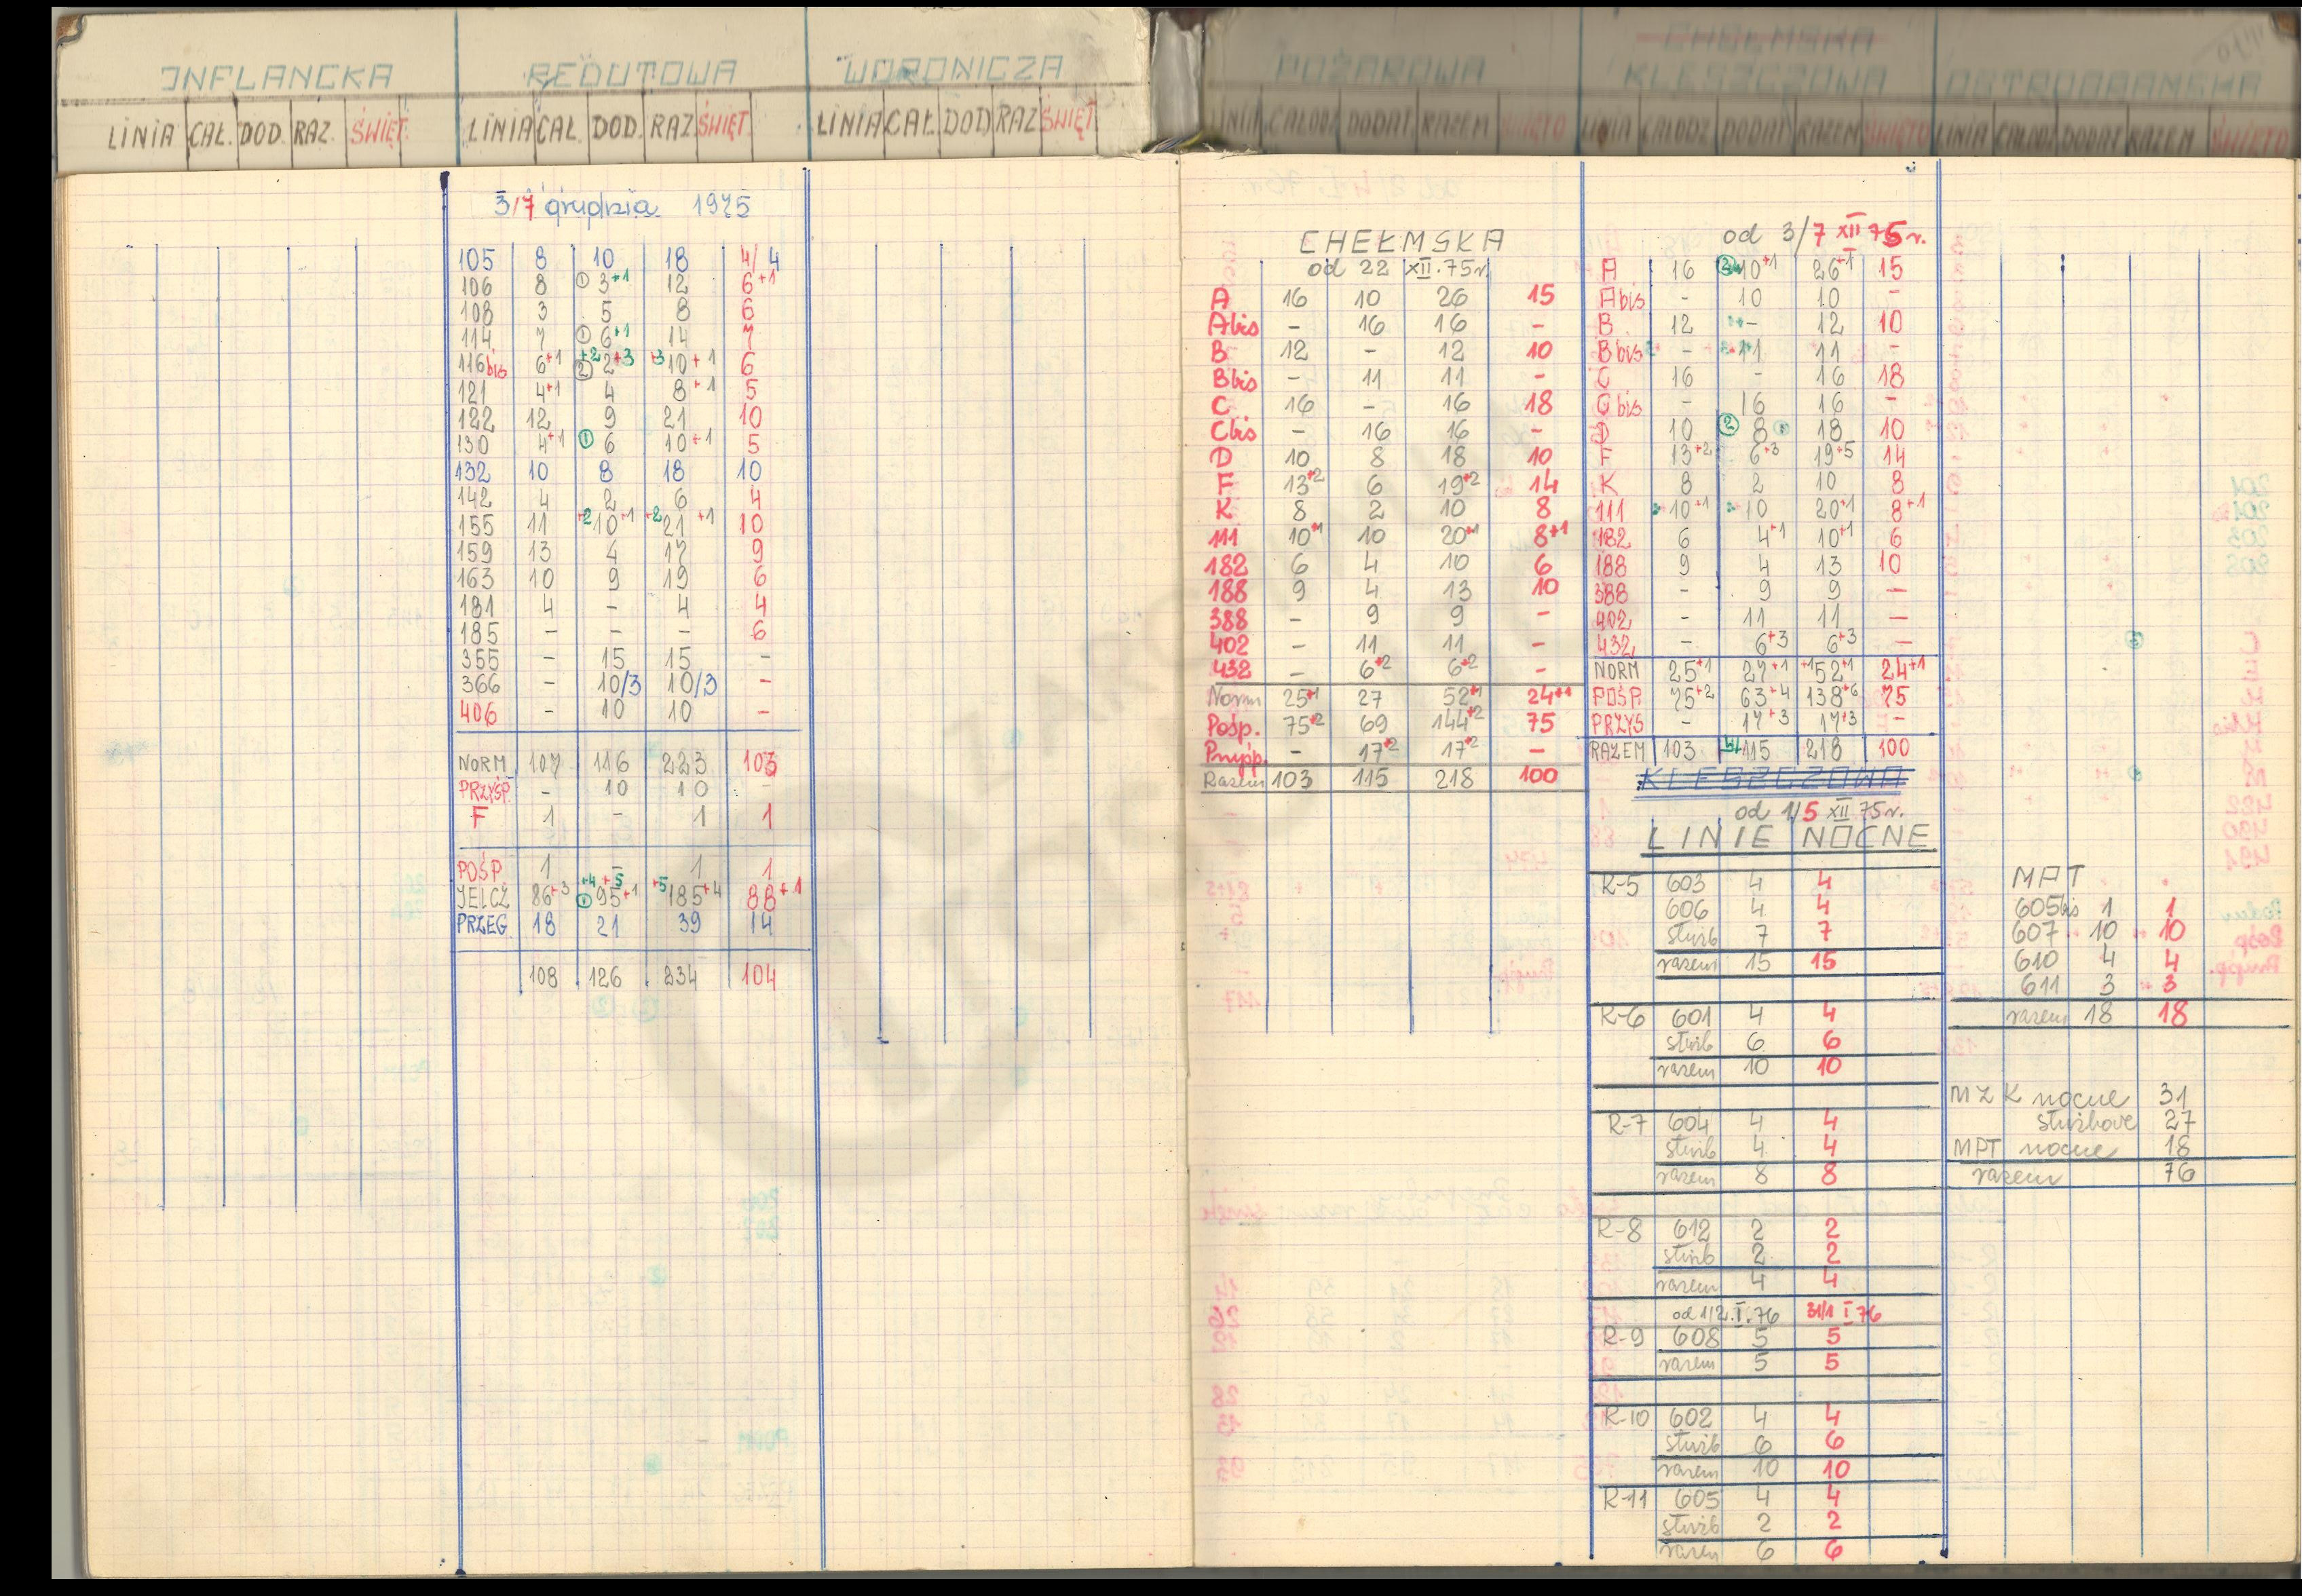 INFLANCKA
LINIA CAŁ. DOD. RAZ. ŚWIĘT.
REDUTOWA
LINIA CAŁ. DOD. RAZ ŚWIĘT
WORONICZA
LINIA CAŁ DOD RAZ ŚWIĘT
POŻAROWA
LINIA CAŁODZ DODAT. RAZEM ŚWIĘTO
CHEŁMSKA
KLESZCZOWA
LINIA CAŁODZ DODAT RAZEM ŚWIĘTO
OSTROBRAMSKA
LINIA CAŁODZ DODAT RAZEM ŚWIĘTO
3/7 grudzia 1975
105 8 10 18 4/4
106 8 ① 3+1 12 6+1
108 3 5 8 6
114 7 ① 6+1 14 7
116bis 6+1 ② +2 2+3 +3 10+1 6
121 4+1 4 8+1 5
122 12 9 21 10
130 4+1 ① 6 10+1 5
132 10 8 18 10
142 4 2 6 4
155 11 +2 10+1 +2 21+1 10
159 13 4 17 9
163 10 9 19 6
181 4 - 4 4
185 - - - 6
355 - 15 15 -
366 - 10/3 10/3 -
406 - 10 10 -
NORM 107 116 223 103
PRZYŚP. - 10 10 -
F 1 - 1 1
POŚP. 1 - 1 1
JELCZ 86+3 ① +4 +5 95+1 +5 185+4 88+1
PRZEG. 18 21 39 14
108 126 234 104
CHEŁMSKA
od 22 XII.75r.
A 16 10 26 15
Abis - 16 16 -
B 12 - 12 10
Bbis - 11 11 -
C 16 - 16 18
Cbis - 16 16 -
D 10 8 18 10
F 13+2 6 19+2 14
K 8 2 10 8
111 10+1 10 20+1 8+1
182 6 4 10 6
188 9 4 13 10
388 - 9 9 -
402 - 11 11 -
432 - 6+2 6+2 -
Norm 25+1 27 52+1 24+1
Pośp. 75+2 69 144+2 75
Przyśp. - 17+2 17+2 -
Razem 103 115 218 100
od 3/7 XII 75 r.
A 16 10+1 26+1 15
Abis - 10 10 -
B 12 - 12 10
Bbis - 11 11 -
C 16 - 16 18
C bis - 16 16 -
D 10 ② 8 18 10
F 13+2 6+3 19+5 14
K 8 2 10 8
111 10+1 10 20+1 8+1
182 6 4+1 10+1 6
188 9 4 13 10
388 - 9 9 -
402 - 11 11 -
432 - 6+3 6+3 -
NORM 25+1 27+1 +1 52+1 24+1
POŚP. 75+2 63+4 138+6 75
PRZYŚ - 17+3 17+3 -
RAZEM 103 115 218 100
KLESZCZOWA
od 1/5 XII 75r.
LINIE NOCNE
R-5 603 4 4
606 4 4
służb 7 7
razem 15 15
R-6 601 4 4
służb 6 6
razem 10 10
R-7 604 4 4
służb 4 4
razem 8 8
R-8 612 2 2
służb 2 2
razem 4 4
od 1/2.I.76 31/1 I 76
R-9 608 5 5
razem 5 5
R-10 602 4 4
służb 6 6
razem 10 10
R-11 605 4 4
służb 2 2
razem 6 6
MPT
605bis 1 1
607 10 10
610 4 4
611 3 3
razem 18 18
MZK nocne 31
służbowe 27
MPT nocne 18
razem 76